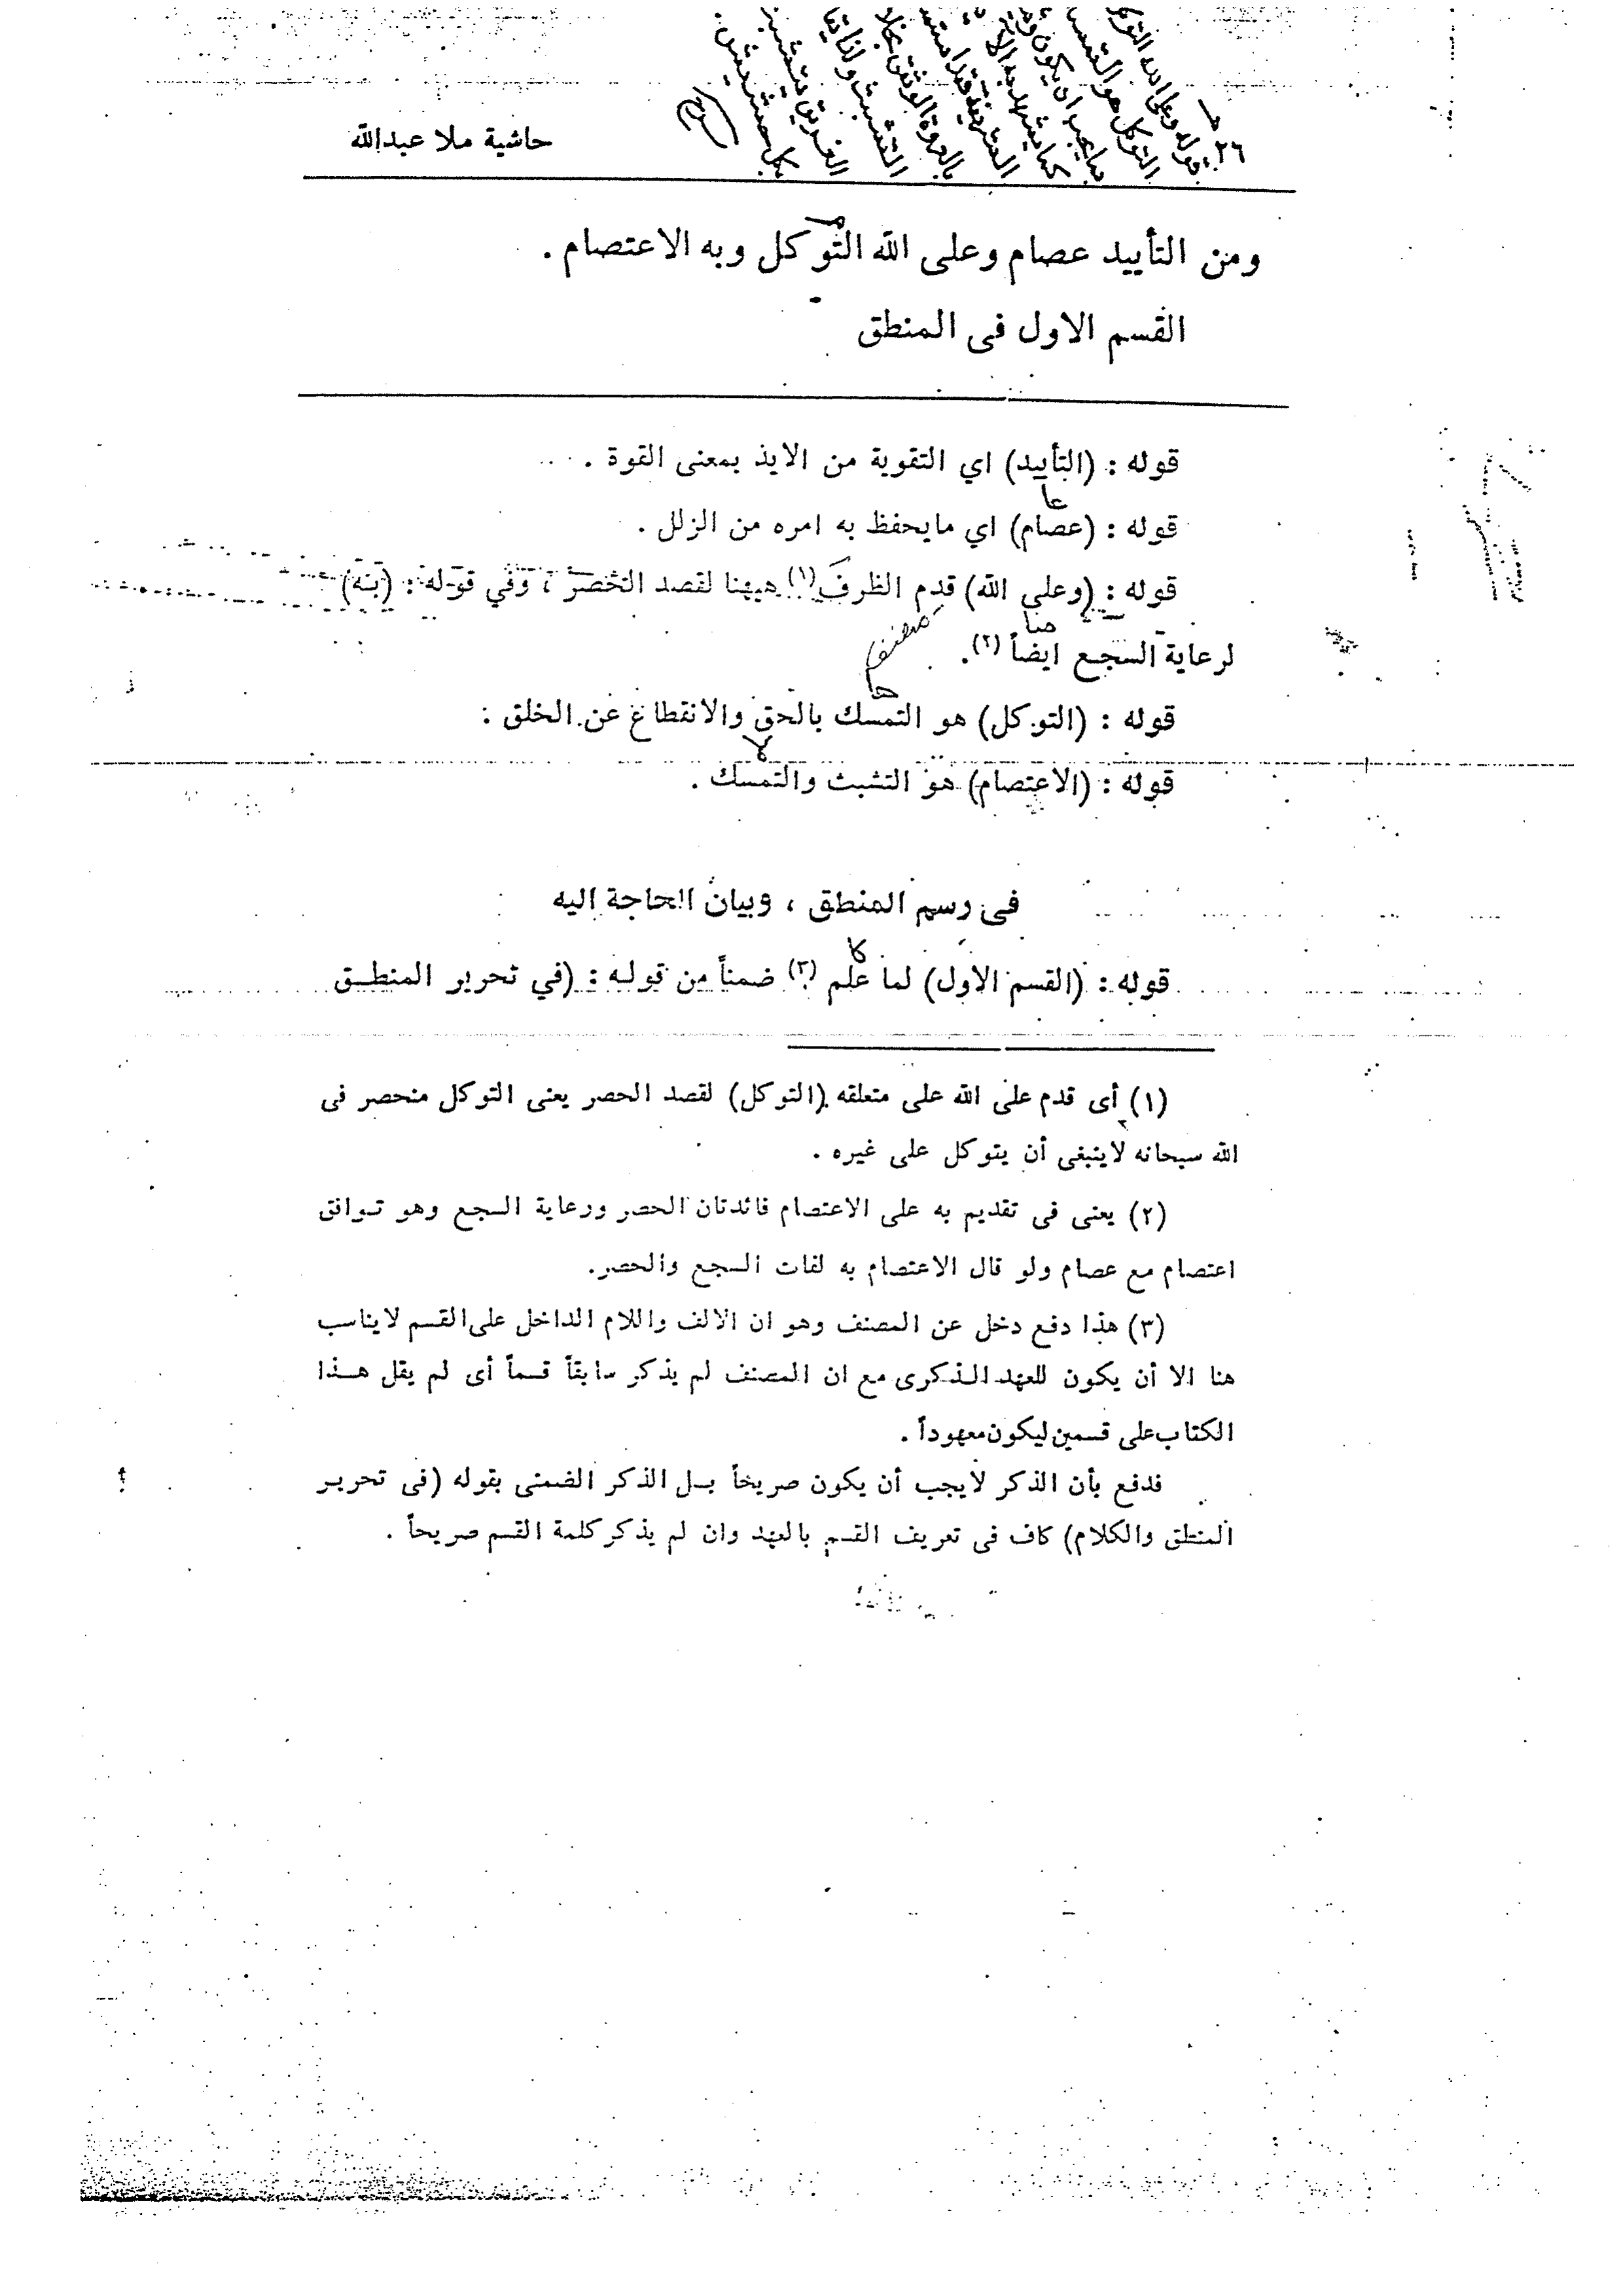 ٢٦
حاشية ملا عبدالله
ومن التأييد عصام وعلى الله التوكل وبه الاعتصام .
القسم الاول فى المنطق
قوله : (التأييد) اي التقوية من الايد بمعنى القوة .
قوله : (عصام) اي مايحفظ به امره من الزلل .
قوله : (وعلى الله) قدم الظرف (١) هيهنا لقصد الحصر ، وفي قوله : (به)
لرعاية السجع ايضاً (٢).
قوله : (التوكل) هو التمسك بالحق والانقطاع عن الخلق :
قوله : (الاعتصام) هو التشبث والتمسك .
فى رسم المنطق ، وبيان الحاجة اليه
قوله : (القسم الاول) لما علم (٣) ضمناً من قوله : (في تحرير المنطق
(١) أى قدم على الله على متعلقه (التوكل) لقصد الحصر يعنى التوكل منحصر فى
الله سبحانه لاينبغى أن يتوكل على غيره .
(٢) يعنى فى تقديم به على الاعتصام فائدتان الحصر ورعاية السجع وهو توافق
اعتصام مع عصام ولو قال الاعتصام به لفات السجع والحصر.
(٣) هذا دفع دخل عن المصنف وهو ان الالف واللام الداخل على القسم لايناسب
هنا الا أن يكون للعهد الذكرى مع ان المصنف لم يذكر سابقاً قسماً أى لم يقل هذا
الكتاب على قسمين ليكون معهوداً .
فدفع بأن الذكر لايجب أن يكون صريحاً بل الذكر الضمنى بقوله (فى تحرير
المنطق والكلام) كاف فى تعريف القسم بالعهد وان لم يذكر كلمة القسم صريحاً .